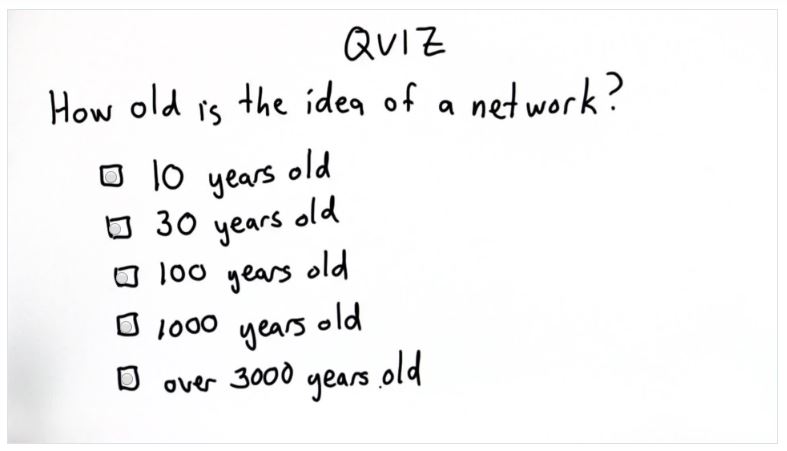 QUIZ
How old is the idea of a network?
10 years old
30 years old
100 years old
1000 years old
over 3000 years old